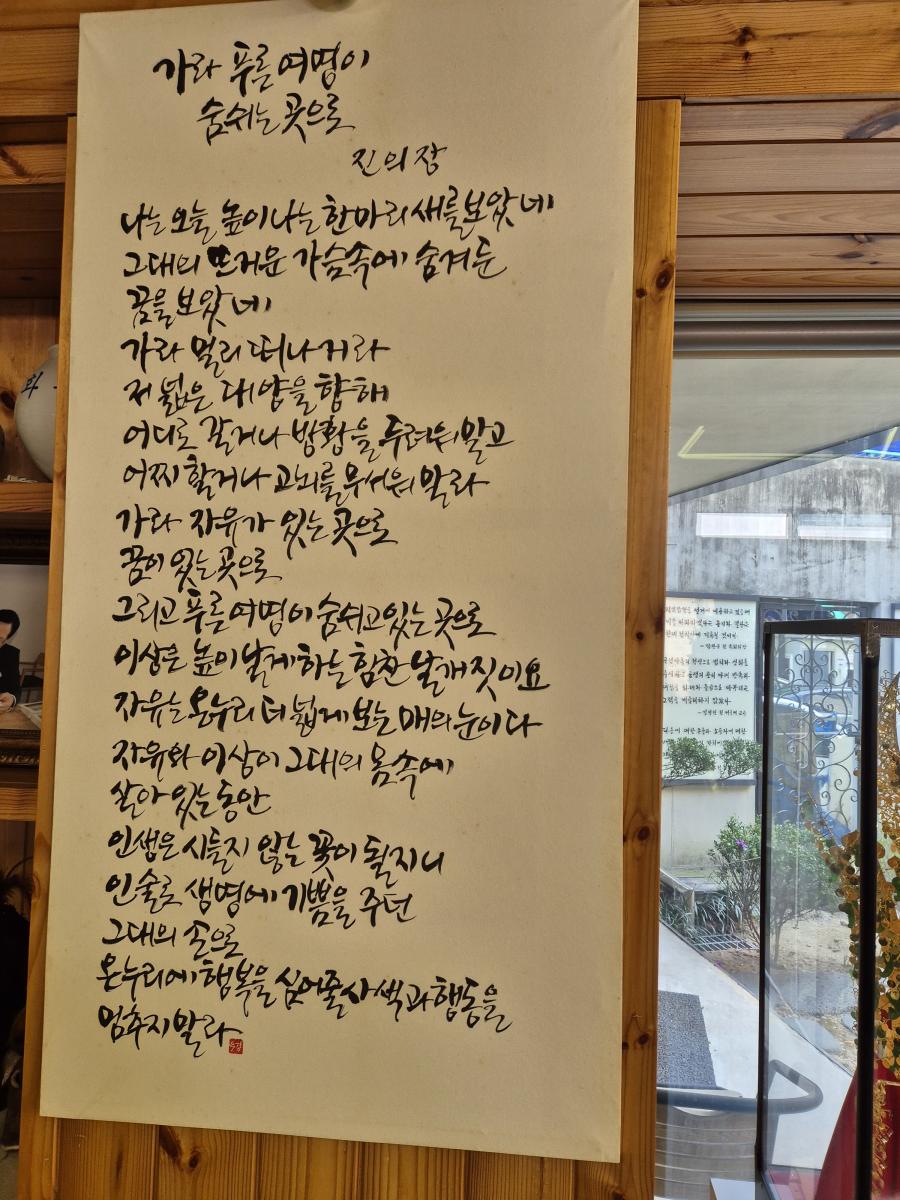 가라 푸른 여명이
숨쉬는 곳으로
진의장
나는 오늘 높이 나는 한마리 새를 보았네
그대의 뜨거운 가슴속에 숨겨둔
꿈을 보았네
가라 멀리 떠나거라
저 넓은 대양을 향해
어디로 갈거나 방황을 두려워말고
어찌 할거나 고뇌를 무서워 말라
가라 자유가 있는 곳으로
꿈이 있는 곳으로
그리고 푸른 여명이 숨쉬고 있는 곳으로
이상은 높이 날게 하는 힘찬 날개짓이요
자유는 온누리 더 넓게 보는 매의 눈이다
자유와 이상이 그대의 몸속에
살아 있는 동안
인생은 시들지 않는 꽃이 될지니
인술로 생명에 기쁨을 주던
그대의 손으로
온누리에 행복을 심어줄 사색과 행동을
멈추지 말라